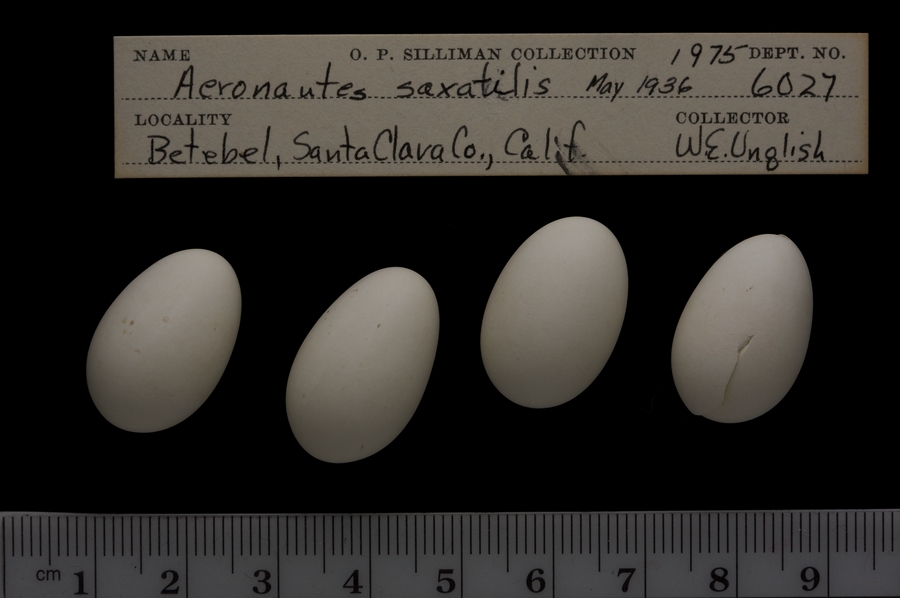 NAME O. P. SILLIMAN COLLECTION 1975 DEPT. NO.
Aeronautes saxatilis May 1936 6027
LOCALITY COLLECTOR
Betebel, Santa Clara Co., Calif. W.E. Unglish
cm 1 2 3 4 5 6 7 8 9